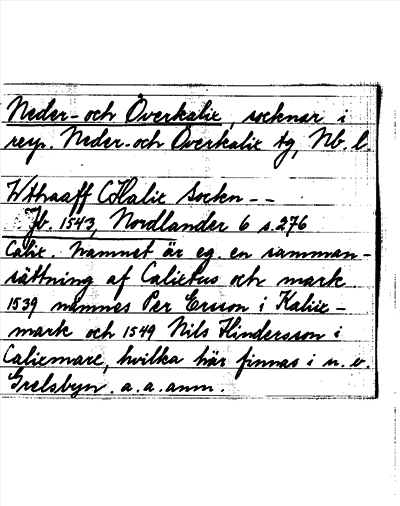 Neder- och Överkalix, socknar i
resp. Neder- och Överkalix tg, Nb. l.
Wthaaff Calix Sockn - -
Jb. 1543, Nordlander 6 s. 276
Calix. Namnet är eg. en samman-
sättning af Calixtus och mark.
1539 nämnes Per Ersson i Kalix-
mark och 1549 Nils Hindersson i
Calixmarc, hvilka här finnas i n. v.
Grelsbyn. a. a. anm.